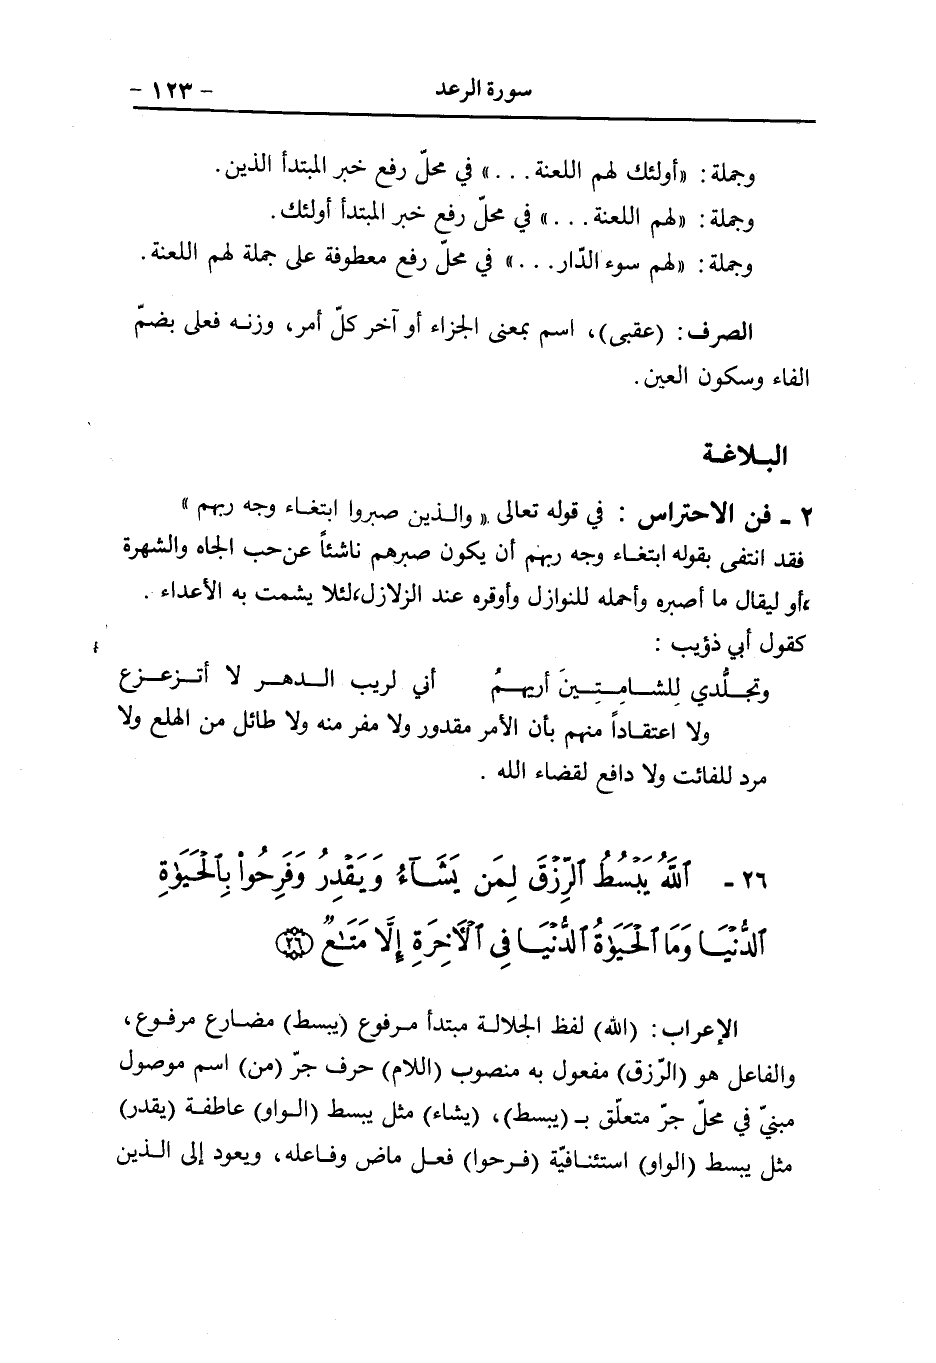 سورة الرعد - ١٢٣ -
وجملة: «أولئك لهم اللعنة...» في محلّ رفع خبر المبتدأ الذين.
وجملة: «لهم اللعنة...» في محلّ رفع خبر المبتدأ أولئك.
وجملة: «لهم سوء الدّار...» في محلّ رفع معطوفة على جملة لهم اللعنة.
الصرف: (عقبى)، اسم بمعنى الجزاء أو آخر كلّ أمر، وزنه فعلى بضمّ
الفاء وسكون العين.
البلاغة
٢ - فن الاحتراس : في قوله تعالى « والذين صبروا ابتغاء وجه ربهم »
فقد انتفى بقوله ابتغاء وجه ربهم أن يكون صبرهم ناشئاً عن حب الجاه والشهرة
،أو ليقال ما أصبره وأحمله للنوازل وأوقره عند الزلازل،لئلا يشمت به الأعداء .
كقول أبي ذؤيب :
وتجلُّدي لِلشامِتِينَ أريهمُ أني لريب الدهر لا أتزعزع
ولا اعتقاداً منهم بأن الأمر مقدور ولا مفر منه ولا طائل من الهلع ولا
مرد للفائت ولا دافع لقضاء الله .
٢٦ - ٱللَّهُ يَبْسُطُ ٱلرِّزْقَ لِمَن يَشَآءُ وَيَقْدِرُ وَفَرِحُوا۟ بِٱلْحَيَوٰةِ
ٱلدُّنْيَا وَمَا ٱلْحَيَوٰةُ ٱلدُّنْيَا فِى ٱلْآخِرَةِ إِلَّا مَتَـٰعٌ ﴿٢٦﴾
الإعراب: (الله) لفظ الجلالة مبتدأ مرفوع (يبسط) مضارع مرفوع،
والفاعل هو (الرّزق) مفعول به منصوب (اللام) حرف جرّ (من) اسم موصول
مبنيّ في محلّ جرّ متعلّق بـ (يبسط)، (يشاء) مثل يبسط (الواو) عاطفة (يقدر)
مثل يبسط (الواو) استئنافيّة (فرحوا) فعل ماض وفاعله، ويعود إلى الذين